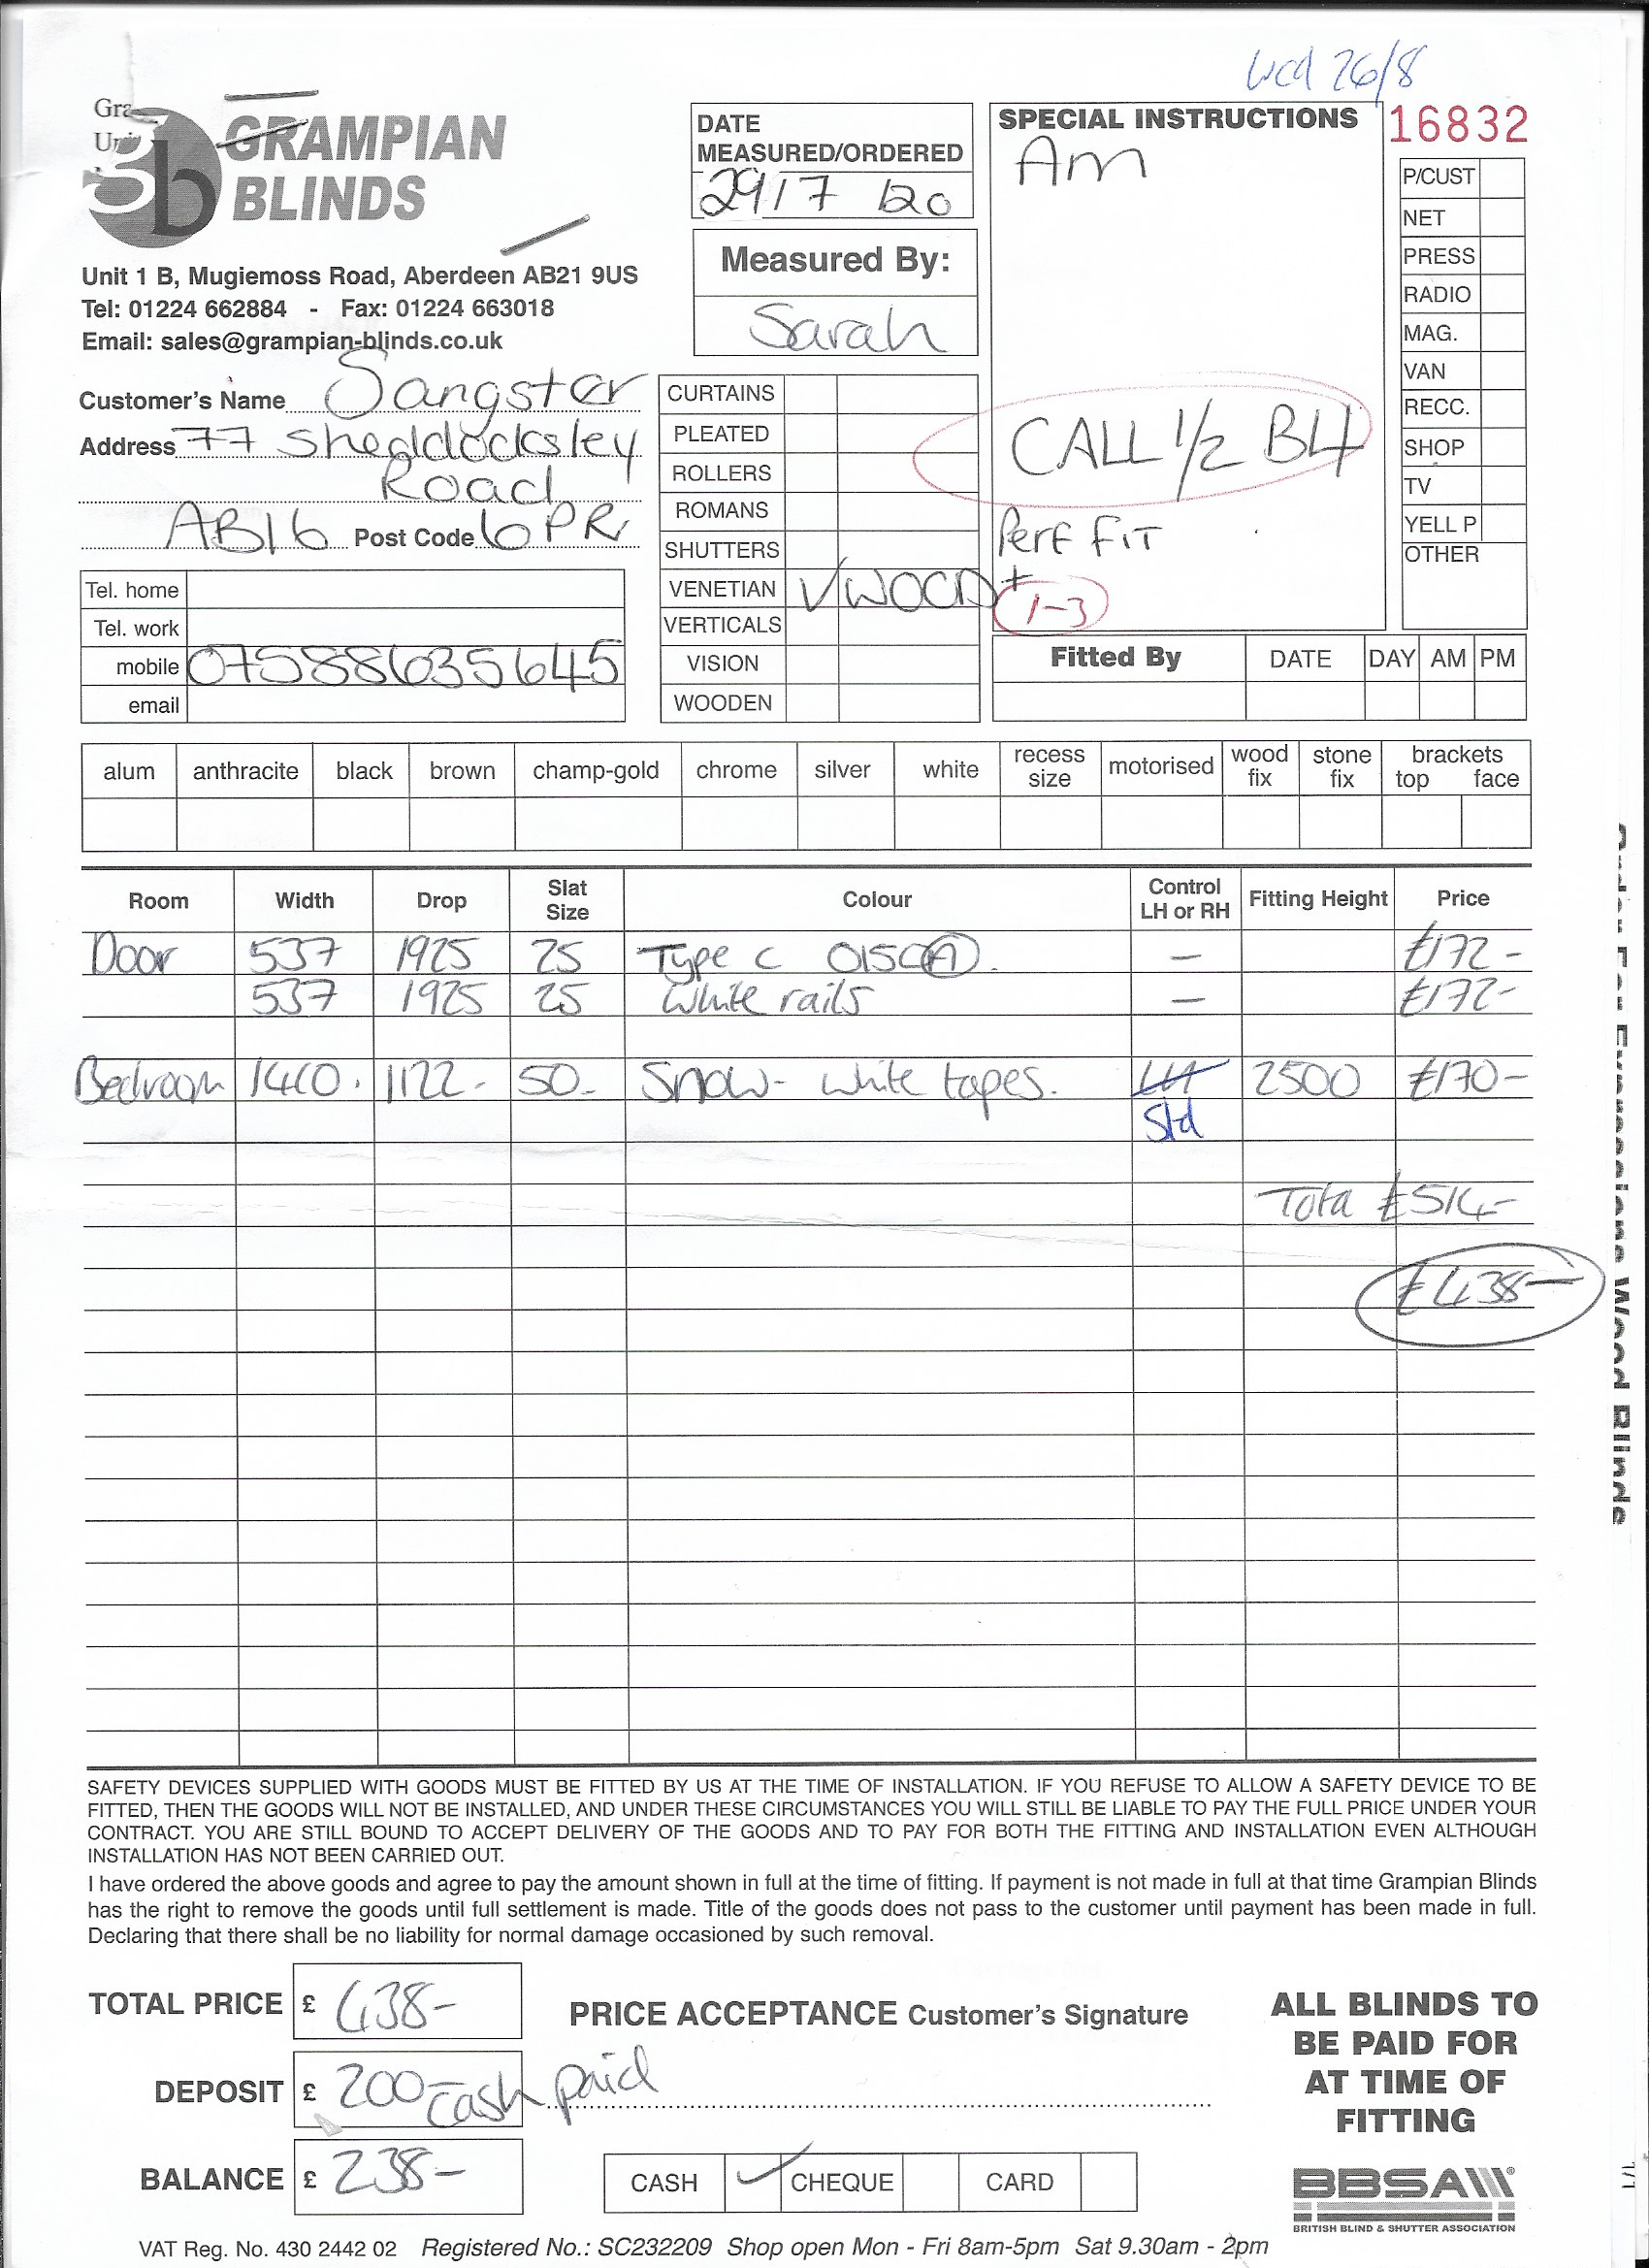 wed 26/8
Gra
Un
gb GRAMPIAN
BLINDS
Unit 1 B, Mugiemoss Road, Aberdeen AB21 9US
Tel: 01224 662884 - Fax: 01224 663018
Email: sales@grampian-blinds.co.uk
DATE
MEASURED/ORDERED
29/7 20
Measured By:
Sarah
SPECIAL INSTRUCTIONS
Am
CALL 1/2 B4
Perf FiT
+
1-3
16832
P/CUST
NET
PRESS
RADIO
MAG.
VAN
RECC.
SHOP
TV
YELL P
OTHER
Customer's Name Sangster
Address 77 Sheddocksley
Road
AB16 Post Code 6PR
Tel. home
Tel. work
mobile 07588635645
email
CURTAINS
PLEATED
ROLLERS
ROMANS
SHUTTERS
VENETIAN ✓ WOOD
VERTICALS
VISION
WOODEN
Fitted By DATE DAY AM PM
alum anthracite black brown champ-gold chrome silver white recess size motorised wood fix stone fix brackets top face
Room Width Drop Slat Size Colour Control LH or RH Fitting Height Price
Door 537 1925 25 Type C 0150 A. - £172-
537 1925 25 White rails - £172-
Bedroom 1410. 1122- 50- Snow- white tapes. LH 2500 £170-
Std
Tota £514-
£438-
SAFETY DEVICES SUPPLIED WITH GOODS MUST BE FITTED BY US AT THE TIME OF INSTALLATION. IF YOU REFUSE TO ALLOW A SAFETY DEVICE TO BE
FITTED, THEN THE GOODS WILL NOT BE INSTALLED, AND UNDER THESE CIRCUMSTANCES YOU WILL STILL BE LIABLE TO PAY THE FULL PRICE UNDER YOUR
CONTRACT. YOU ARE STILL BOUND TO ACCEPT DELIVERY OF THE GOODS AND TO PAY FOR BOTH THE FITTING AND INSTALLATION EVEN ALTHOUGH
INSTALLATION HAS NOT BEEN CARRIED OUT.
I have ordered the above goods and agree to pay the amount shown in full at the time of fitting. If payment is not made in full at that time Grampian Blinds
has the right to remove the goods until full settlement is made. Title of the goods does not pass to the customer until payment has been made in full.
Declaring that there shall be no liability for normal damage occasioned by such removal.
TOTAL PRICE £ 438-
DEPOSIT £ 200- cash paid
BALANCE £ 238-
PRICE ACCEPTANCE Customer's Signature
CASH ✓ CHEQUE CARD
ALL BLINDS TO
BE PAID FOR
AT TIME OF
FITTING
BBSA
BRITISH BLIND & SHUTTER ASSOCIATION
VAT Reg. No. 430 2442 02 Registered No.: SC232209 Shop open Mon - Fri 8am-5pm Sat 9.30am - 2pm
Wood Blinds
1/1